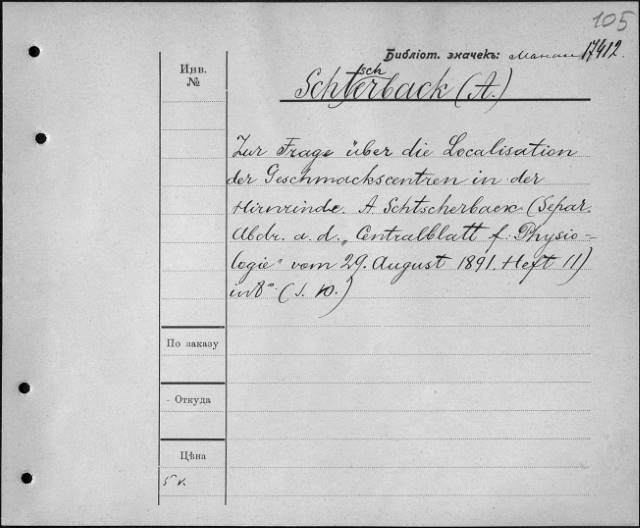 105
Библіот. значекъ: 17412.
Инв.
№
Schtscherback (A.)
Zur Frage über die Localisation
der Geschmackscentren in der
Hirnrinde. A. Schtscherback. (Separ.
Abdr. a. d. „Centralblatt f. Physio-
logie" vom 29. August 1891. Heft 11)
in 8° (S. 10.)
По заказу
Откуда
Цѣна
5 к.